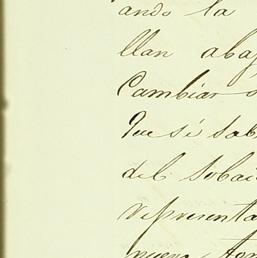 ando la
llan abaj
Cambiar
Que si sab
del
representa
nueva